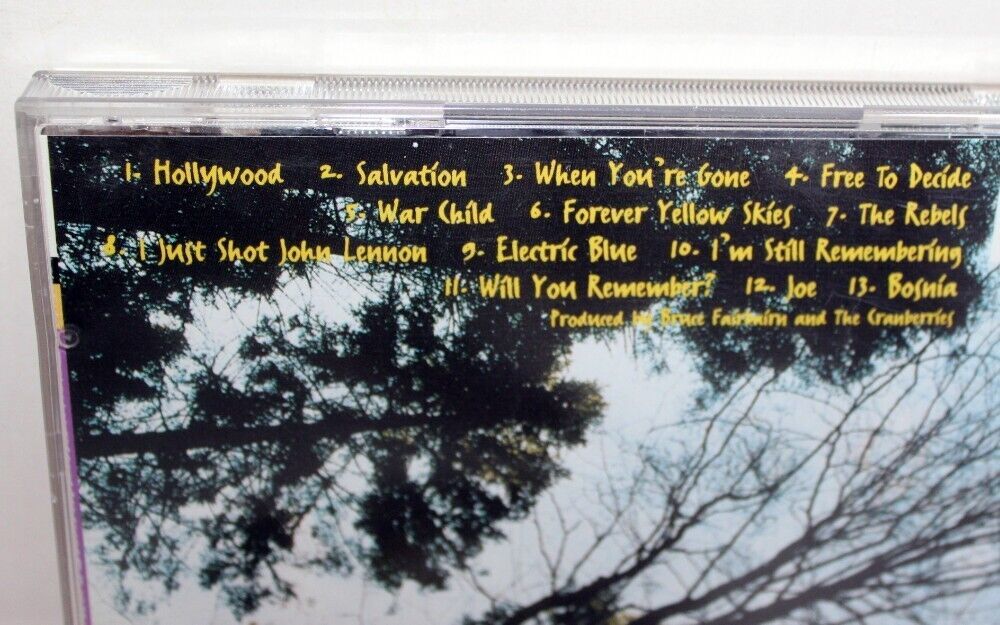 1. Hollywood 2. Salvation 3. When You're Gone 4. Free To Decide
5. War Child 6. Forever Yellow Skies 7. The Rebels
8. I Just Shot John Lennon 9. Electric Blue 10. I'm Still Remembering
11. Will You Remember? 12. Joe 13. Bosnia
Produced by Bruce Fairbairn and The Cranberries